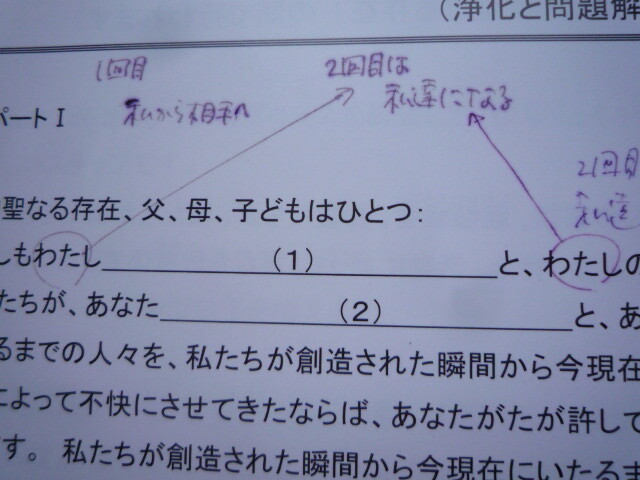 （浄化と問題解
1回目
2回目は
私達になる
私から相手へ
パートⅠ
2回目
私達
聖なる存在、父、母、子どもはひとつ：
しもわたし（1）と、わたしの
たちが、あなた（2）と、あ
るまでの人々を、私たちが創造された瞬間から今現在
によって不快にさせてきたならば、あなたがたが許して
す。 私たちが創造された瞬間から今現在にいたるま